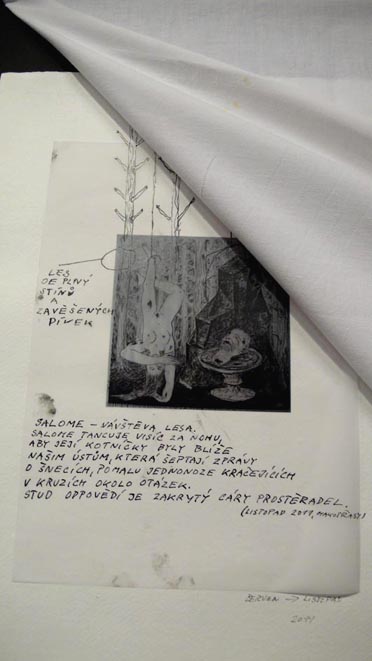 LES
JE PLNÝ
STÍNŮ
A
ZAVĚŠENÝCH
DÍVEK
SALOME – NÁVŠTĚVA LESA.
SALOME TANCUJE VISÍC ZA NOHU,
ABY JEJÍ KOTNÍČKY BYLY BLÍŽE
NAŠIM ÚSTŮM, KTERÁ ŠEPTAJÍ ZPRÁVY
O ŠNECÍCH, POMALU JEDNONOZE KRÁČEJÍCÍCH
V KRUZÍCH OKOLO OTÁZEK.
STUD ODPOVĚDÍ JE ZAKRYTÝ CÁRY PROSTĚRADEL.
(LISTOPAD 2011,
ČERVEN → LISTOPAD
2011